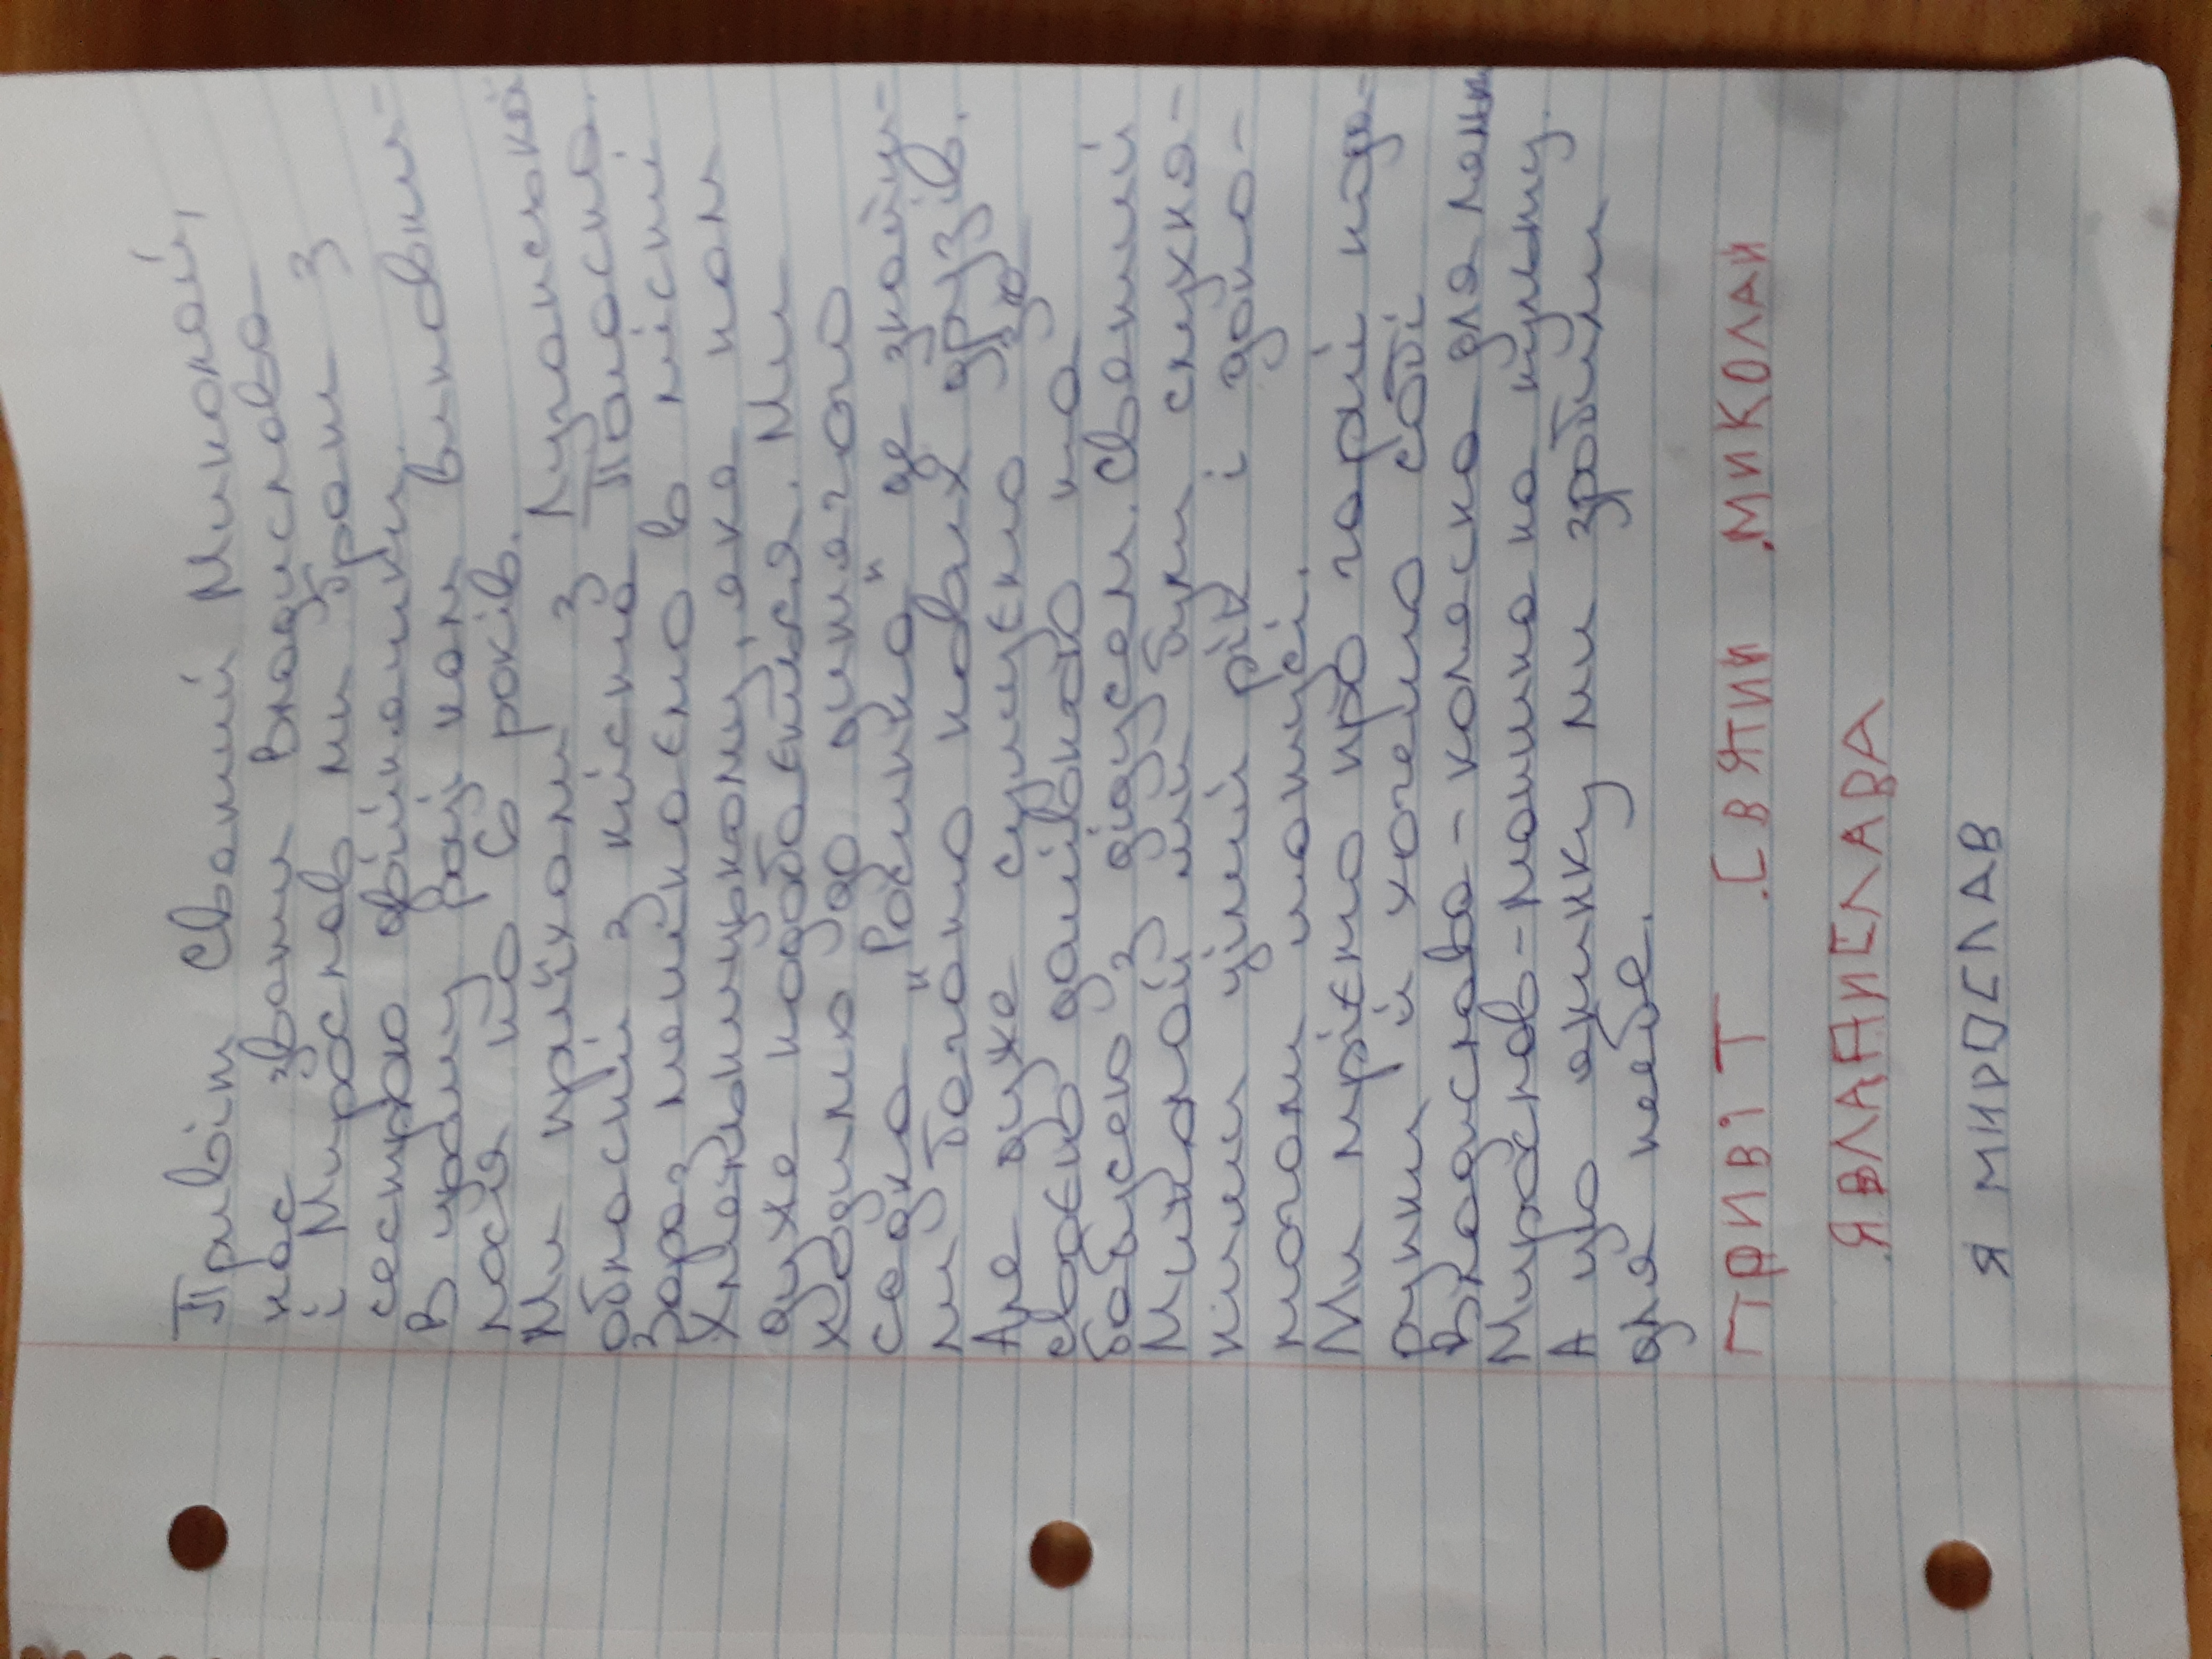 Привіт Святий Миколай,
нас звати Владислава
і Мирослав ми брат з
сестрою двійнятки.
В цьому році нам виповни-
лося по 6 років.
Ми приїхали з Луганської
області з міста Попасна.
Зараз мешкаємо в місті
Хмельницькому, яке нам
дуже подобається. Ми
ходимо до дитячого
садка „Росинка" де знайш-
ли багато нових друзів.
Але дуже сумуємо за
своєю домівкою та
бабусею з дідусем. Святий
Миколай ми були слухня-
ними цілий рік і допо-
могали матусі.
Ми мріємо про гарні пода-
рунки й хочемо собі
Владислава - коляска для ляльки
Мирослав - машинка на пульту.
А цю ялинку ми зробили
для тебе.
ПРИВІТ .СВЯТИЙ .МИКОЛАЙ
Я ВЛАДИСЛАВА
Я МИРОСЛАВ